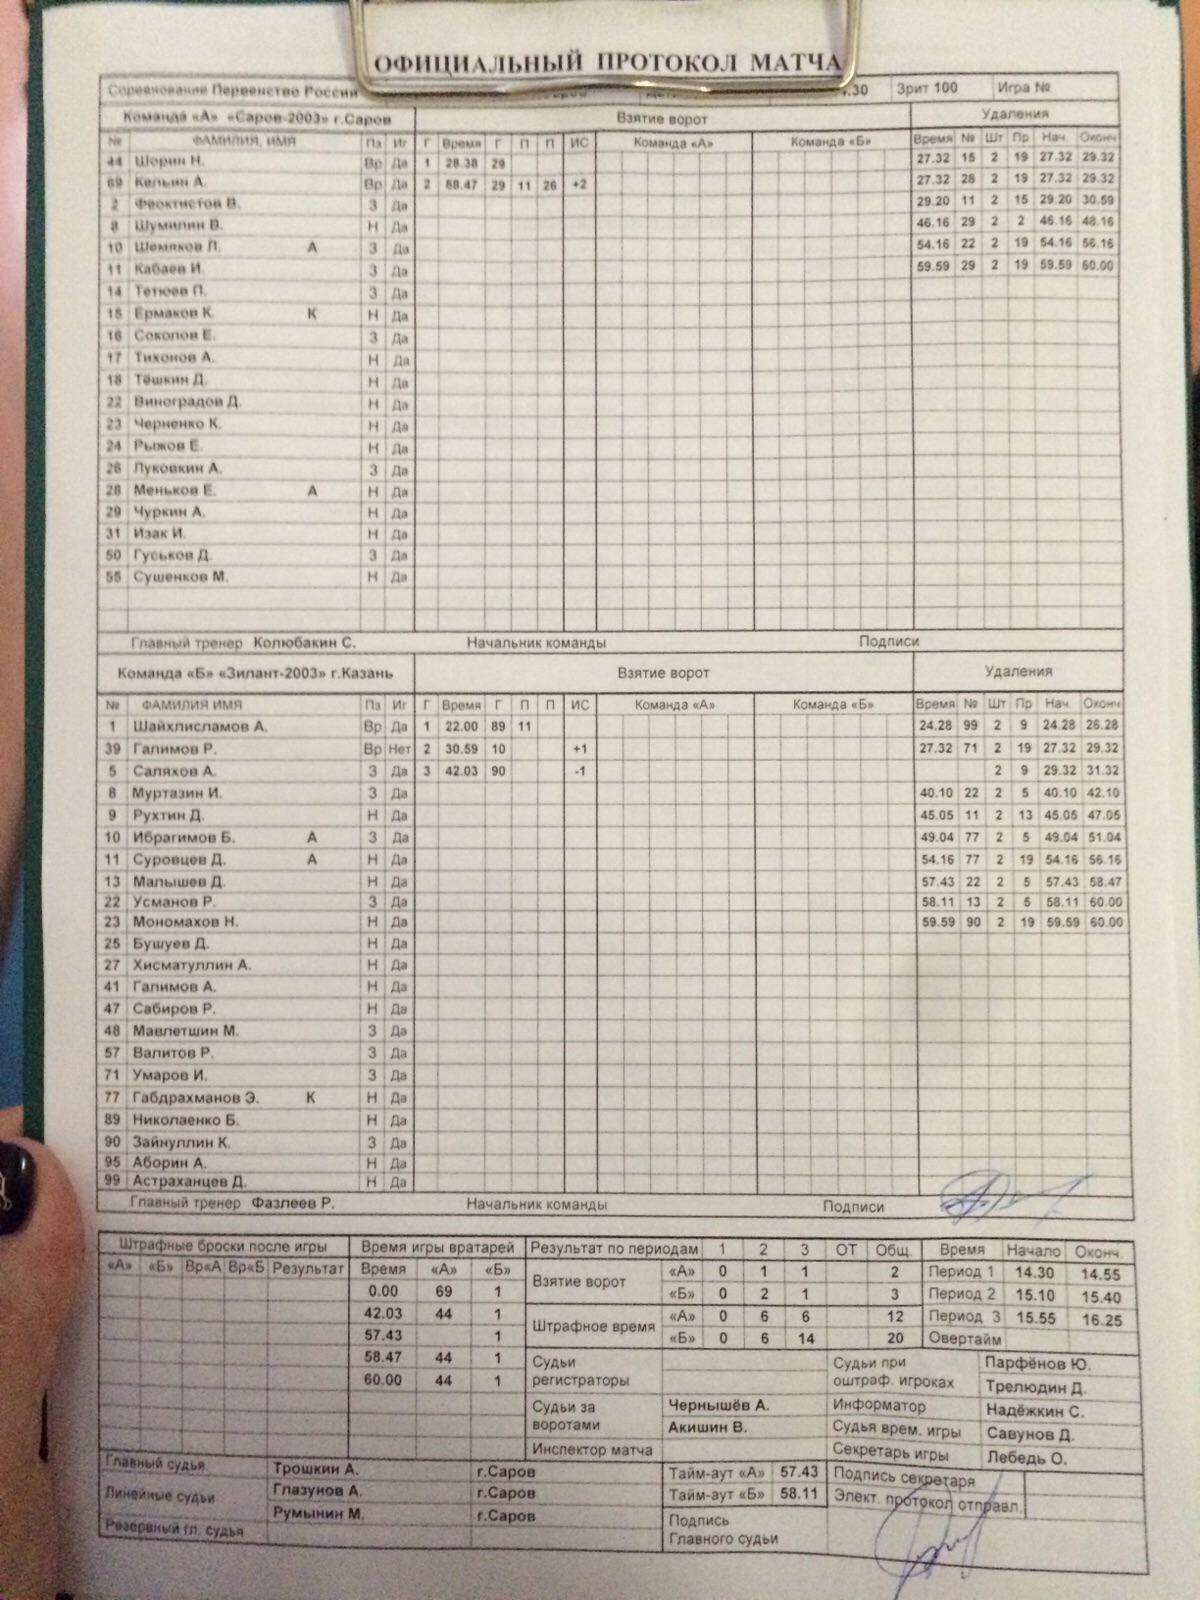 ОФИЦИАЛЬНЫЙ ПРОТОКОЛ МАТЧА
Соревнование Первенство России .30 Зрит 100 Игра №
Команда «А» «Саров-2003» г.Саров Взятие ворот Удаления
№ ФАМИЛИЯ, ИМЯ Пз Иг Г Время Г П П ИС Команда «А» Команда «Б» Время № Шт Пр Нач. Оконч
44 Шорин Н. Вр Да 1 28.38 29 27.32 15 2 19 27.32 29.32
69 Кельин А. Вр Да 2 58.47 29 11 26 +2 27.32 28 2 19 27.32 29.32
2 Феоктистов В. З Да 29.20 11 2 15 29.20 30.59
8 Шумилин В. Н Да 46.16 29 2 2 46.16 48.16
10 Шемяков Л. А З Да 54.16 22 2 19 54.16 56.16
11 Кабаев И. З Да 59.59 29 2 19 59.59 60.00
14 Тетюев П. З Да
15 Ермаков К. К Н Да
16 Соколов Е. З Да
17 Тихонов А. Н Да
18 Тёшкин Д. Н Да
22 Виноградов Д. Н Да
23 Черненко К. Н Да
24 Рыжов Е. Н Да
26 Луковкин А. З Да
28 Меньков Е. А Н Да
29 Чуркин А. Н Да
31 Изак И. Н Да
50 Гуськов Д. З Да
55 Сушенков М. Н Да
Главный тренер Колюбакин С. Начальник команды Подписи
Команда «Б» «Зилант-2003» г.Казань Взятие ворот Удаления
№ ФАМИЛИЯ ИМЯ Пз Иг Г Время Г П П ИС Команда «А» Команда «Б» Время № Шт Пр Нач. Оконч
1 Шайхлисламов А. Вр Да 1 22.00 89 11 24.28 99 2 9 24.28 26.28
39 Галимов Р. Вр Нет 2 30.59 10 +1 27.32 71 2 19 27.32 29.32
5 Саляхов А. З Да 3 42.03 90 -1 2 9 29.32 31.32
8 Муртазин И. З Да 40.10 22 2 5 40.10 42.10
9 Рухтин Д. Н Да 45.05 11 2 13 45.05 47.05
10 Ибрагимов Б. А З Да 49.04 77 2 5 49.04 51.04
11 Суровцев Д. А Н Да 54.16 77 2 19 54.16 56.16
13 Малышев Д. Н Да 57.43 22 2 5 57.43 58.47
22 Усманов Р. З Да 58.11 13 2 5 58.11 60.00
23 Мономахов Н. Н Да 59.59 90 2 19 59.59 60.00
25 Бушуев Д. Н Да
27 Хисматуллин А. Н Да
41 Галимов А. Н Да
47 Сабиров Р. Н Да
48 Мавлетшин М. З Да
57 Валитов Р. З Да
71 Умаров И. З Да
77 Габдрахманов Э. К Н Да
89 Николаенко Б. Н Да
90 Зайнуллин К. З Да
95 Аборин А. Н Да
99 Астраханцев Д. Н Да
Главный тренер Фазлеев Р. Начальник команды Подписи
Штрафные броски после игры Время игры вратарей Результат по периодам 1 2 3 ОТ Общ. Время Начало Оконч.
«А» «Б» Вр«А Вр«Б Результат Время «А» «Б» Взятие ворот «А» 0 1 1 2 Период 1 14.30 14.55
0.00 69 1 «Б» 0 2 1 3 Период 2 15.10 15.40
42.03 44 1 Штрафное время «А» 0 6 6 12 Период 3 15.55 16.25
57.43 1 «Б» 0 6 14 20 Овертайм
58.47 44 1 Судьи регистраторы Судьи при оштраф. игроках Парфёнов Ю.
60.00 44 1 Трелюдин Д.
Судьи за воротами Чернышёв А. Информатор Надёжкин С.
Акишин В. Судья врем. игры Савунов Д.
Инспектор матча Секретарь игры Лебедь О.
Главный судья Трошкин А. г.Саров Тайм-аут «А» 57.43 Подпись секретаря
Линейные судьи Глазунов А. г.Саров Тайм-аут «Б» 58.11 Элект. протокол отправл.
Румынин М. г.Саров Подпись
Резервный гл. судья Главного судьи